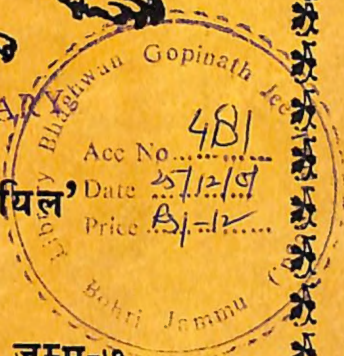 ARY
Library Bhaghwan Gopinath Jee
Acc No......481
यिल' Date 25/12/01
Price Rs/-12
Bohri Jammu
जम्मू